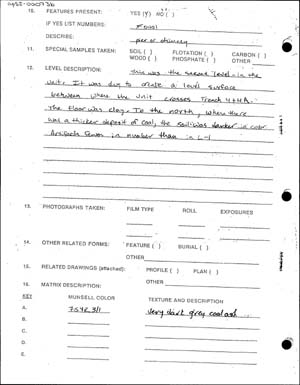 10. FEATURES PRESENT: YES (Y) NO ( )
IF YES LIST NUMBERS:
DESCRIBE: chimney
11. SPECIAL SAMPLES TAKEN: SOIL ( ) FLOTATION ( ) CARBON ( )
WOOD ( ) PHOSPHATE ( ) OTHER
12. LEVEL DESCRIPTION: This was the second level in the
unit. It was dug to create a level surface
between where the unit crosses Trench 4 & 4A.
The floor was clay. To the north, where there
was a thicker deposit of coal, the soil was darker in color
Artifacts fewer in number than in L-1
13. PHOTOGRAPHS TAKEN: FILM TYPE ROLL EXPOSURES
14. OTHER RELATED FORMS: FEATURE ( ) BURIAL ( )
OTHER
15. RELATED DRAWINGS (attached): PROFILE ( ) PLAN ( )
OTHER
16. MATRIX DESCRIPTION:
KEY MUNSELL COLOR TEXTURE AND DESCRIPTION
A. 7.5YR 3/1 very dark grey coal ash
B.
C.
D.
E.